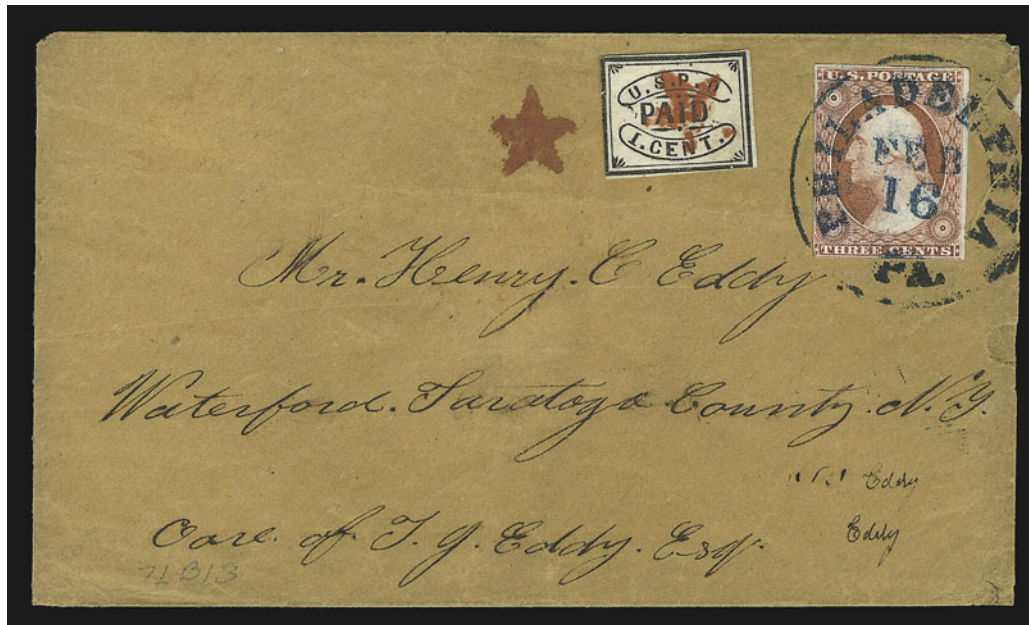 U.S.P.O
PAID
1.CENT.
U.S. POSTAGE
THREE CENTS
PHILADELPHIA
FEB
16
PA.
Mr. Henry. C Eddy
Waterford. Saratoga County. N.Y.
Eddy
Care. of. T. G. Eddy. Esqr.
Eddy
7LB13